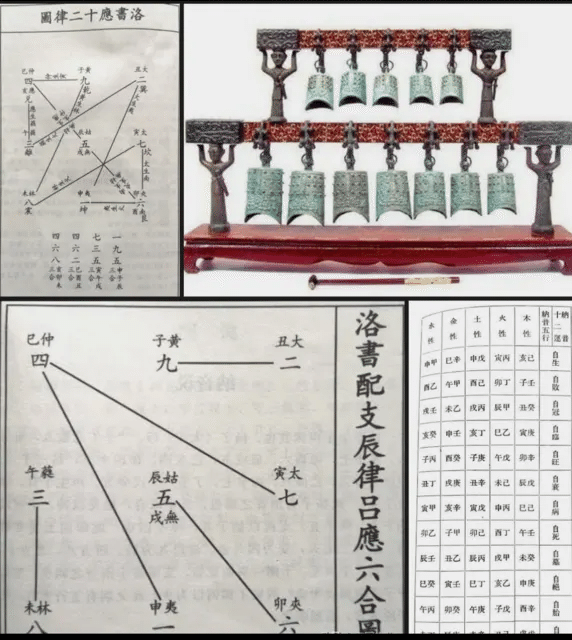 洛書應十二律圖
仲
巳
四
應
亥
兌
黃
子
九
乾
太
丑
二
巽
午
三
離
姑
辰
五
無
戌
太
寅
七
坎
林
未
八
震
夷
申
一
坤
夾
卯
六
酉
南
艮
一九五申子辰三合
七三五寅午戌三合
四六二巳酉丑三合
四六八亥卯未三合
洛書配支辰律呂應六合圖
仲巳
四
黃子
九
大丑
二
蕤午
三
姑辰
五
無戌
太寅
七
林未
八
夷申
一
夾卯
六
納音十二運
納音五行
木性
火性
土性
金性
水性
自生
己亥
丙寅
戊申
辛巳
甲申
自敗
壬子
丁卯
己酉
甲午
乙酉
自冠
癸丑
甲辰
丙戌
乙未
壬戌
自臨
庚寅
乙巳
丁亥
壬申
癸亥
自旺
辛卯
戊午
庚子
癸酉
丙子
自衰
戊辰
己未
辛丑
庚戌
丁丑
自病
己巳
丙申
戊寅
辛亥
甲寅
自死
壬午
丁酉
己卯
甲子
乙卯
自墓
癸未
甲戌
丙辰
乙丑
壬辰
自絕
庚申
乙亥
丁巳
壬寅
癸巳
自胎
辛酉
戊子
庚午
癸卯
丙午